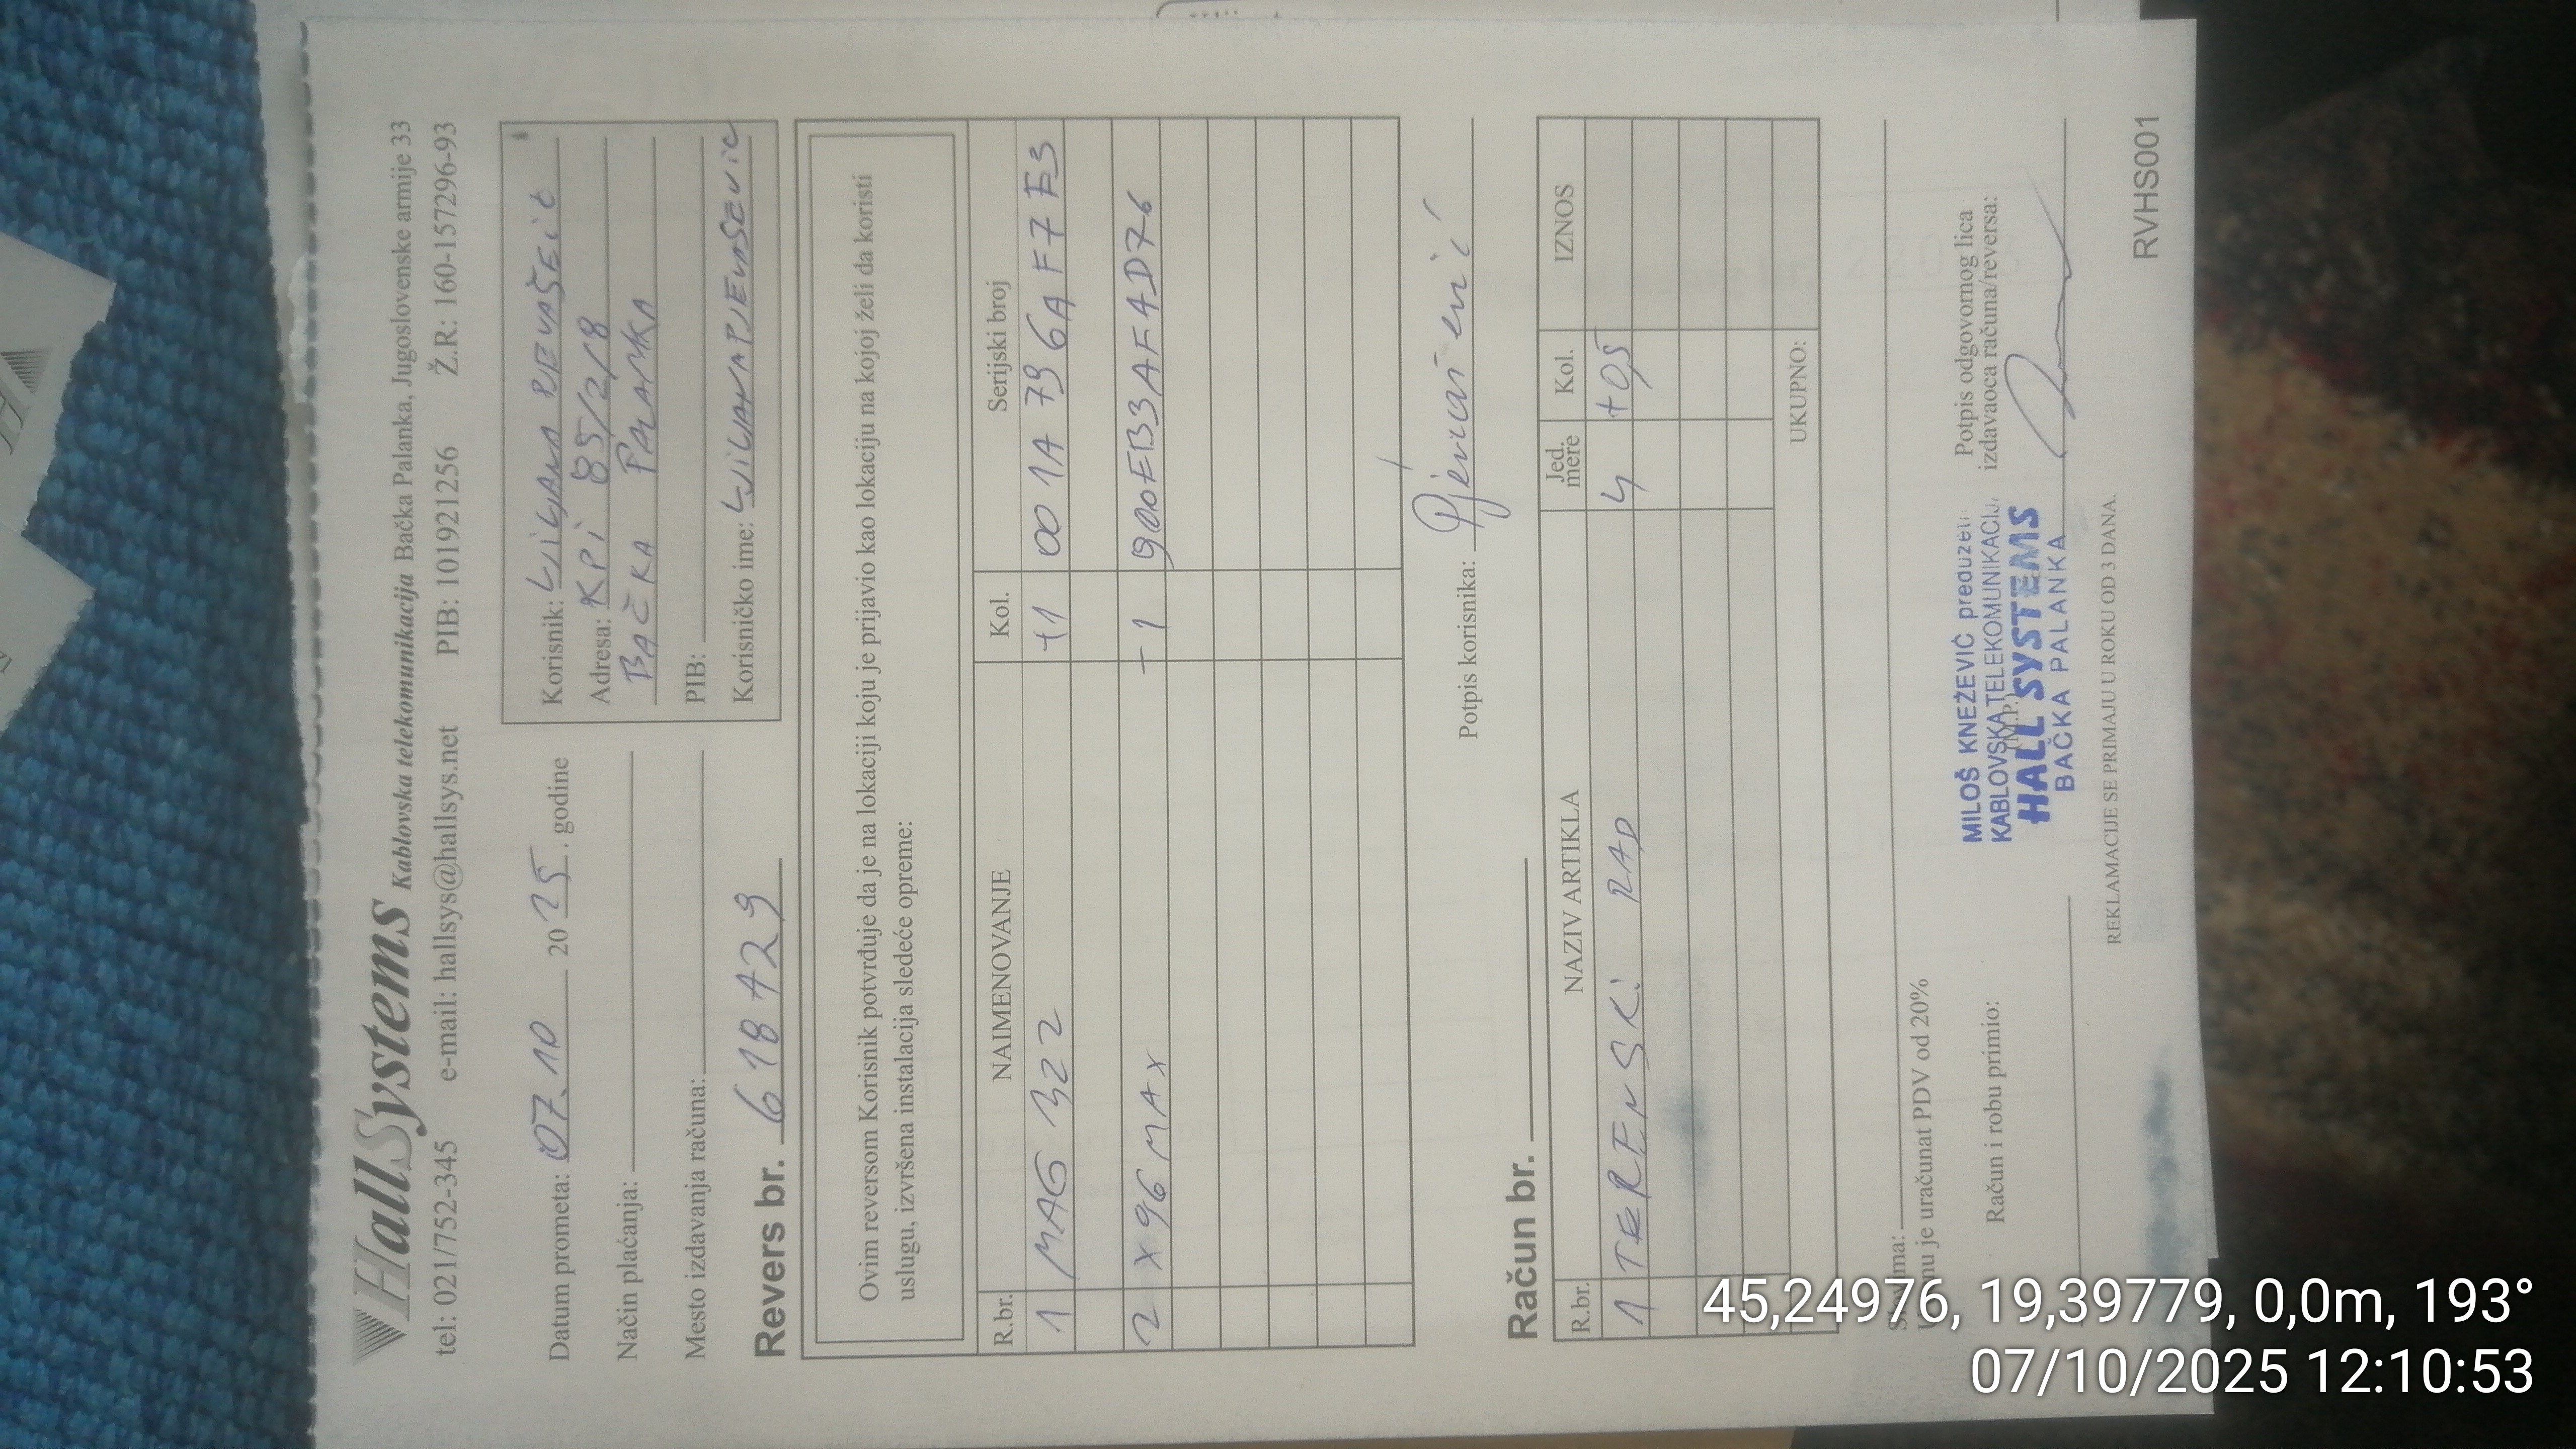 HallSystems Kablovska telekomunikacija Bačka Palanka, Jugoslovenske armije 33
tel: 021/752-345 e-mail: hallsys@hallsys.net PIB: 101921256 Ž.R: 160-157296-93
Datum prometa: 07.10 2025. godine
Način plaćanja:
Mesto izdavanja računa:
Korisnik:
Adresa: KPI 85/2/8
BAČKA PALANKA
PIB:
Korisničko ime:
Revers br. 618429
Ovim reversom Korisnik potvrđuje da je na lokaciji koju je prijavio kao lokaciju na kojoj želi da koristi
uslugu, izvršena instalacija sledeće opreme:
R.br. NAIMENOVANJE Kol. Serijski broj
1 MAG 322 +1 001A796AF7F3
2 X96 MAX -1 900EB3AF4D76
Potpis korisnika:
Račun br.
R.br. NAZIV ARTIKLA Jed. mere Kol. IZNOS
1 TERENSKI RAD 4 +05
UKUPNO:
nu je uračunat PDV od 20%
Račun i robu primio:
(M.P.)
MILOŠ KNEŽEVIĆ preduzet
KABLOVSKA TELEKOMUNIKACIJ
HALL SYSTEMS
BAČKA PALANKA
Potpis odgovornog lica
izdavaoca računa/reversa:
REKLAMACIJE SE PRIMAJU U ROKU OD 3 DANA.
RVHS001
45,24976, 19,39779, 0,0m, 193°
07/10/2025 12:10:53